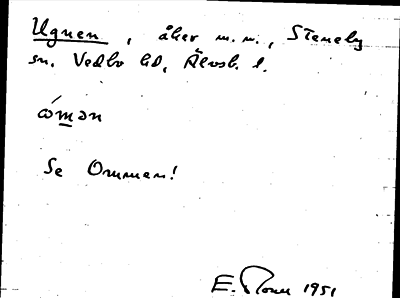 Ugnen, åker m.m., Steneby
sn. Vedbo hd, Älvsb. l.
óman
Se Ommen!
E. 1951